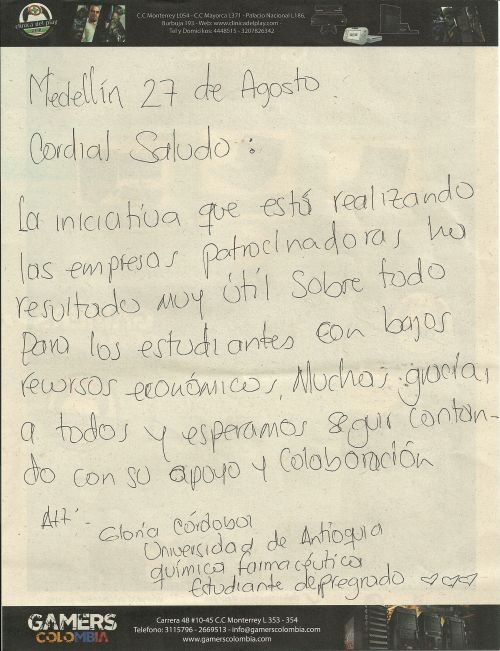 clinica del play
C.C Monterrey L054 - C.C Mayorca L371 - Palacio Nacional L186,
Burbuja 193 - Web: www.clinicadelplay.com -
Tel y Domicilios: 4448515 - 3207826342
Medellín 27 de Agosto.
Cordial Saludo :
La iniciativa que está realizando
las empresas patrocinadoras ha
resultado muy útil sobre todo
para los estudiantes con bajos
recursos económicos, Muchas gracias
a todos y esperamos seguir contan-
do con su apoyo y colaboración
Att:-
Gloria Córdoba
Universidad de Antioquia
química farmacéutica
Estudiante de pregrado ♡♡♡
GAMERS
COLOMBIA
Carrera 48 #10-45 C.C Monterrey L 353 - 354
Telefono: 3115796 - 2669513 - info@gamerscolombia.com
www.gamerscolombia.com